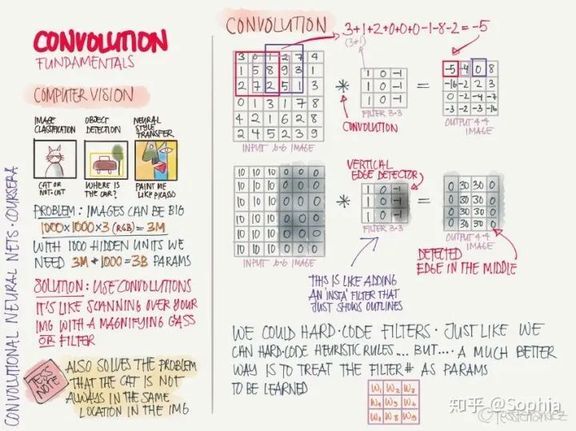 CONVOLUTION
FUNDAMENTALS
COMPUTER VISION
IMAGE CLASSIFICATION
CAT OR NOT-CAT
OBJECT DETECTION
WHERE IS THE CAR?
NEURAL STYLE TRANSFER
PAINT ME LIKE PICASSO
PROBLEM: IMAGES CAN BE BIG
1000×1000×3 (RGB) = 3M
WITH 1000 HIDDEN UNITS WE
NEED 3M * 1000 = 3B PARAMS
SOLUTION: USE CONVOLUTIONS
IT'S LIKE SCANNING OVER YOUR
IMG WITH A MAGNIFYING GASS
OR FILTER
TESS NOTE
ALSO SOLVES THE PROBLEM
THAT THE CAT IS NOT
ALWAYS IN THE SAME
LOCATION IN THE IMG
CONVOLUTIONAL NEURAL NETS · COURSERA
CONVOLUTION
3+1+2+0+0+0-1-8-2=-5
(3*1)
3 0 1 2 7 4
1 5 8 9 3 1
2 7 2 5 1 3
0 1 3 1 7 8
4 2 1 6 2 8
2 4 5 2 3 9
INPUT 6×6 IMAGE
*
CONVOLUTION
1 0 -1
1 0 -1
1 0 -1
FILTER 3×3
=
-5 -4 0 8
-10 -2 2 3
0 -2 -4 -7
-3 -2 -3 -16
OUTPUT 4×4
IMAGE
10 10 10 0 0 0
10 10 10 0 0 0
10 10 10 0 0 0
10 10 10 0 0 0
10 10 10 0 0 0
10 10 10 0 0 0
INPUT 6×6 IMAGE
*
VERTICAL
EDGE DETECTOR
1 0 -1
1 0 -1
1 0 -1
FILTER 3×3
=
0 30 30 0
0 30 30 0
0 30 30 0
0 30 30 0
OUTPUT 4×4
IMAGE
DETECTED
EDGE IN THE MIDDLE
THIS IS LIKE ADDING
AN 'INSTA' FILTER THAT
JUST SHOWS OUTLINES
WE COULD HARD-CODE FILTERS · JUST LIKE WE
CAN HARD-CODE HEURISTIC RULES... BUT... A MUCH BETTER
WAY IS TO TREAT THE FILTER # AS PARAMS
TO BE LEARNED
W1 W2 W3
W4 W5 W6
W7 W8 W9
知乎 @Sophia